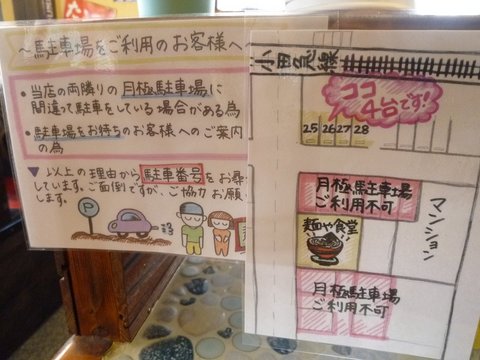 ～駐車場をご利用のお客様へ～
・当店の両隣りの月極駐車場に
間違って駐車をしている場合がある為
・駐車場をお待ちのお客様へのご案内
の為
▼以上の理由から駐車番号をお尋
しています。ご面倒ですが、ご協力お願
します。
P
小田急線
ココ
4台です!
25 26 27 28
月極駐車場
ご利用不可
麺や食堂
マンション
月極駐車場
ご利用不可